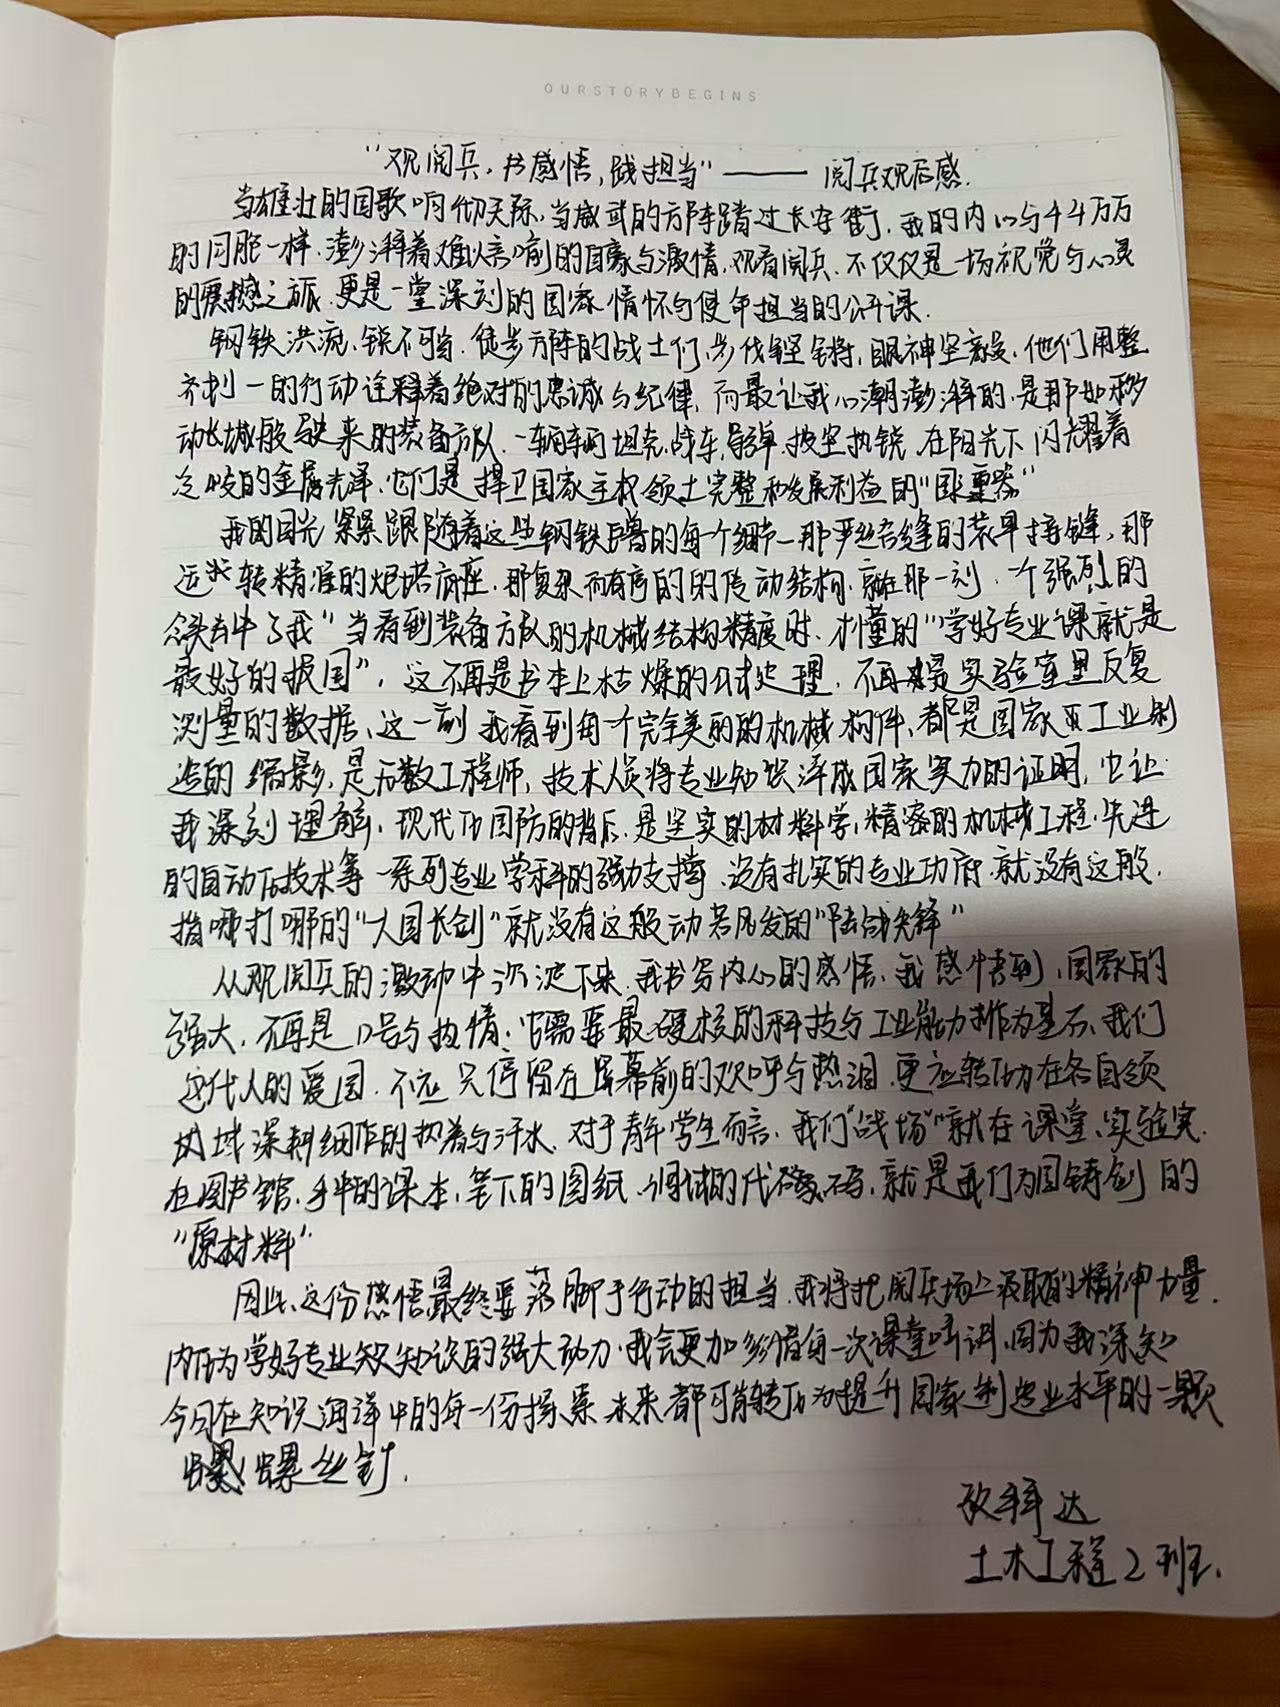 OURSTORYBEGINS
"观阅兵，书感悟，践担当"—— 阅兵观后感.
当雄壮的国歌响彻天际，当威武的方阵踏过长安街，我的内心与44万万
的同胞一样，澎湃着难以言喻的自豪与激情，观看阅兵，不仅仅是一场视觉与心灵
的震撼之旅，更是一堂深刻的国家情怀与使年担当的公开课.
钢铁洪流，锐不可当. 徒步方阵的战士们，步伐铿锵，眼神坚毅，他们用整
齐划一的行动诠释着绝对的忠诚与纪律，而最让我心潮澎湃的，是那如移
动长城般驶来的装备方队，一辆辆坦克，战车，导弹，披坚执锐，在阳光下闪耀着
的金属光泽，它们是捍卫国家主权领土完整和发展利益的"国之重器"
我的目光紧紧跟随着这些钢铁巨兽的每个细节—那严丝合缝的装甲接缝，那
运转精准的炮塔底座，那复杂而有序的的传动结构，就在那一刻，一个强烈的
念头击中了我"当看到装备方队的机械结构精度时，才懂的"学好专业课就是
最好的报国"，这不再是书本上枯燥的公式处理，不再是实验室里反复
测量的数据、这一刻我看到每一个完美的的机械构件，都是国家工业制
造的缩影，是无数工程师，技术人员将专业知识淬成国家实力的证明，它让
我深刻理解，现代化国防的背后，是坚实的材料学，精密的机械工程，先进
的自动化技术等一系列专业学科的强力支撑，没有扎实的专业功底，就没有这般，
指哪打哪的"大国长剑"就没有这般动若风发的"陆战先锋"
从观阅兵的激动中沉淀下来，我书写内心的感悟、我感悟到，国家的
强大，不再是口号与热情，它需要最硬核的科技与工业能力作为基石、我们
这代人的爱国，不应只停留在屏幕前的欢呼与热泪，更应转化为在各自领
域深耕细作的执着与汗水，对于青年学生而言，我们"战场"就在课堂、实验室.
在图书馆，手中的课本，笔下的图纸、调试的代码，就是我们为国铸剑的
"原材料"
因此、这份感悟最终要落脚于行动的担当，我将把阅兵场上汲取的精神力量，
内化为学好专业知识的强大动力，我会更加珍惜每一次课堂听讲，因为我深知
今日在知识海洋中的每一份探索未来都可能转化为提升国家制造业水平的一颗
螺丝钉.
土木工程2班.